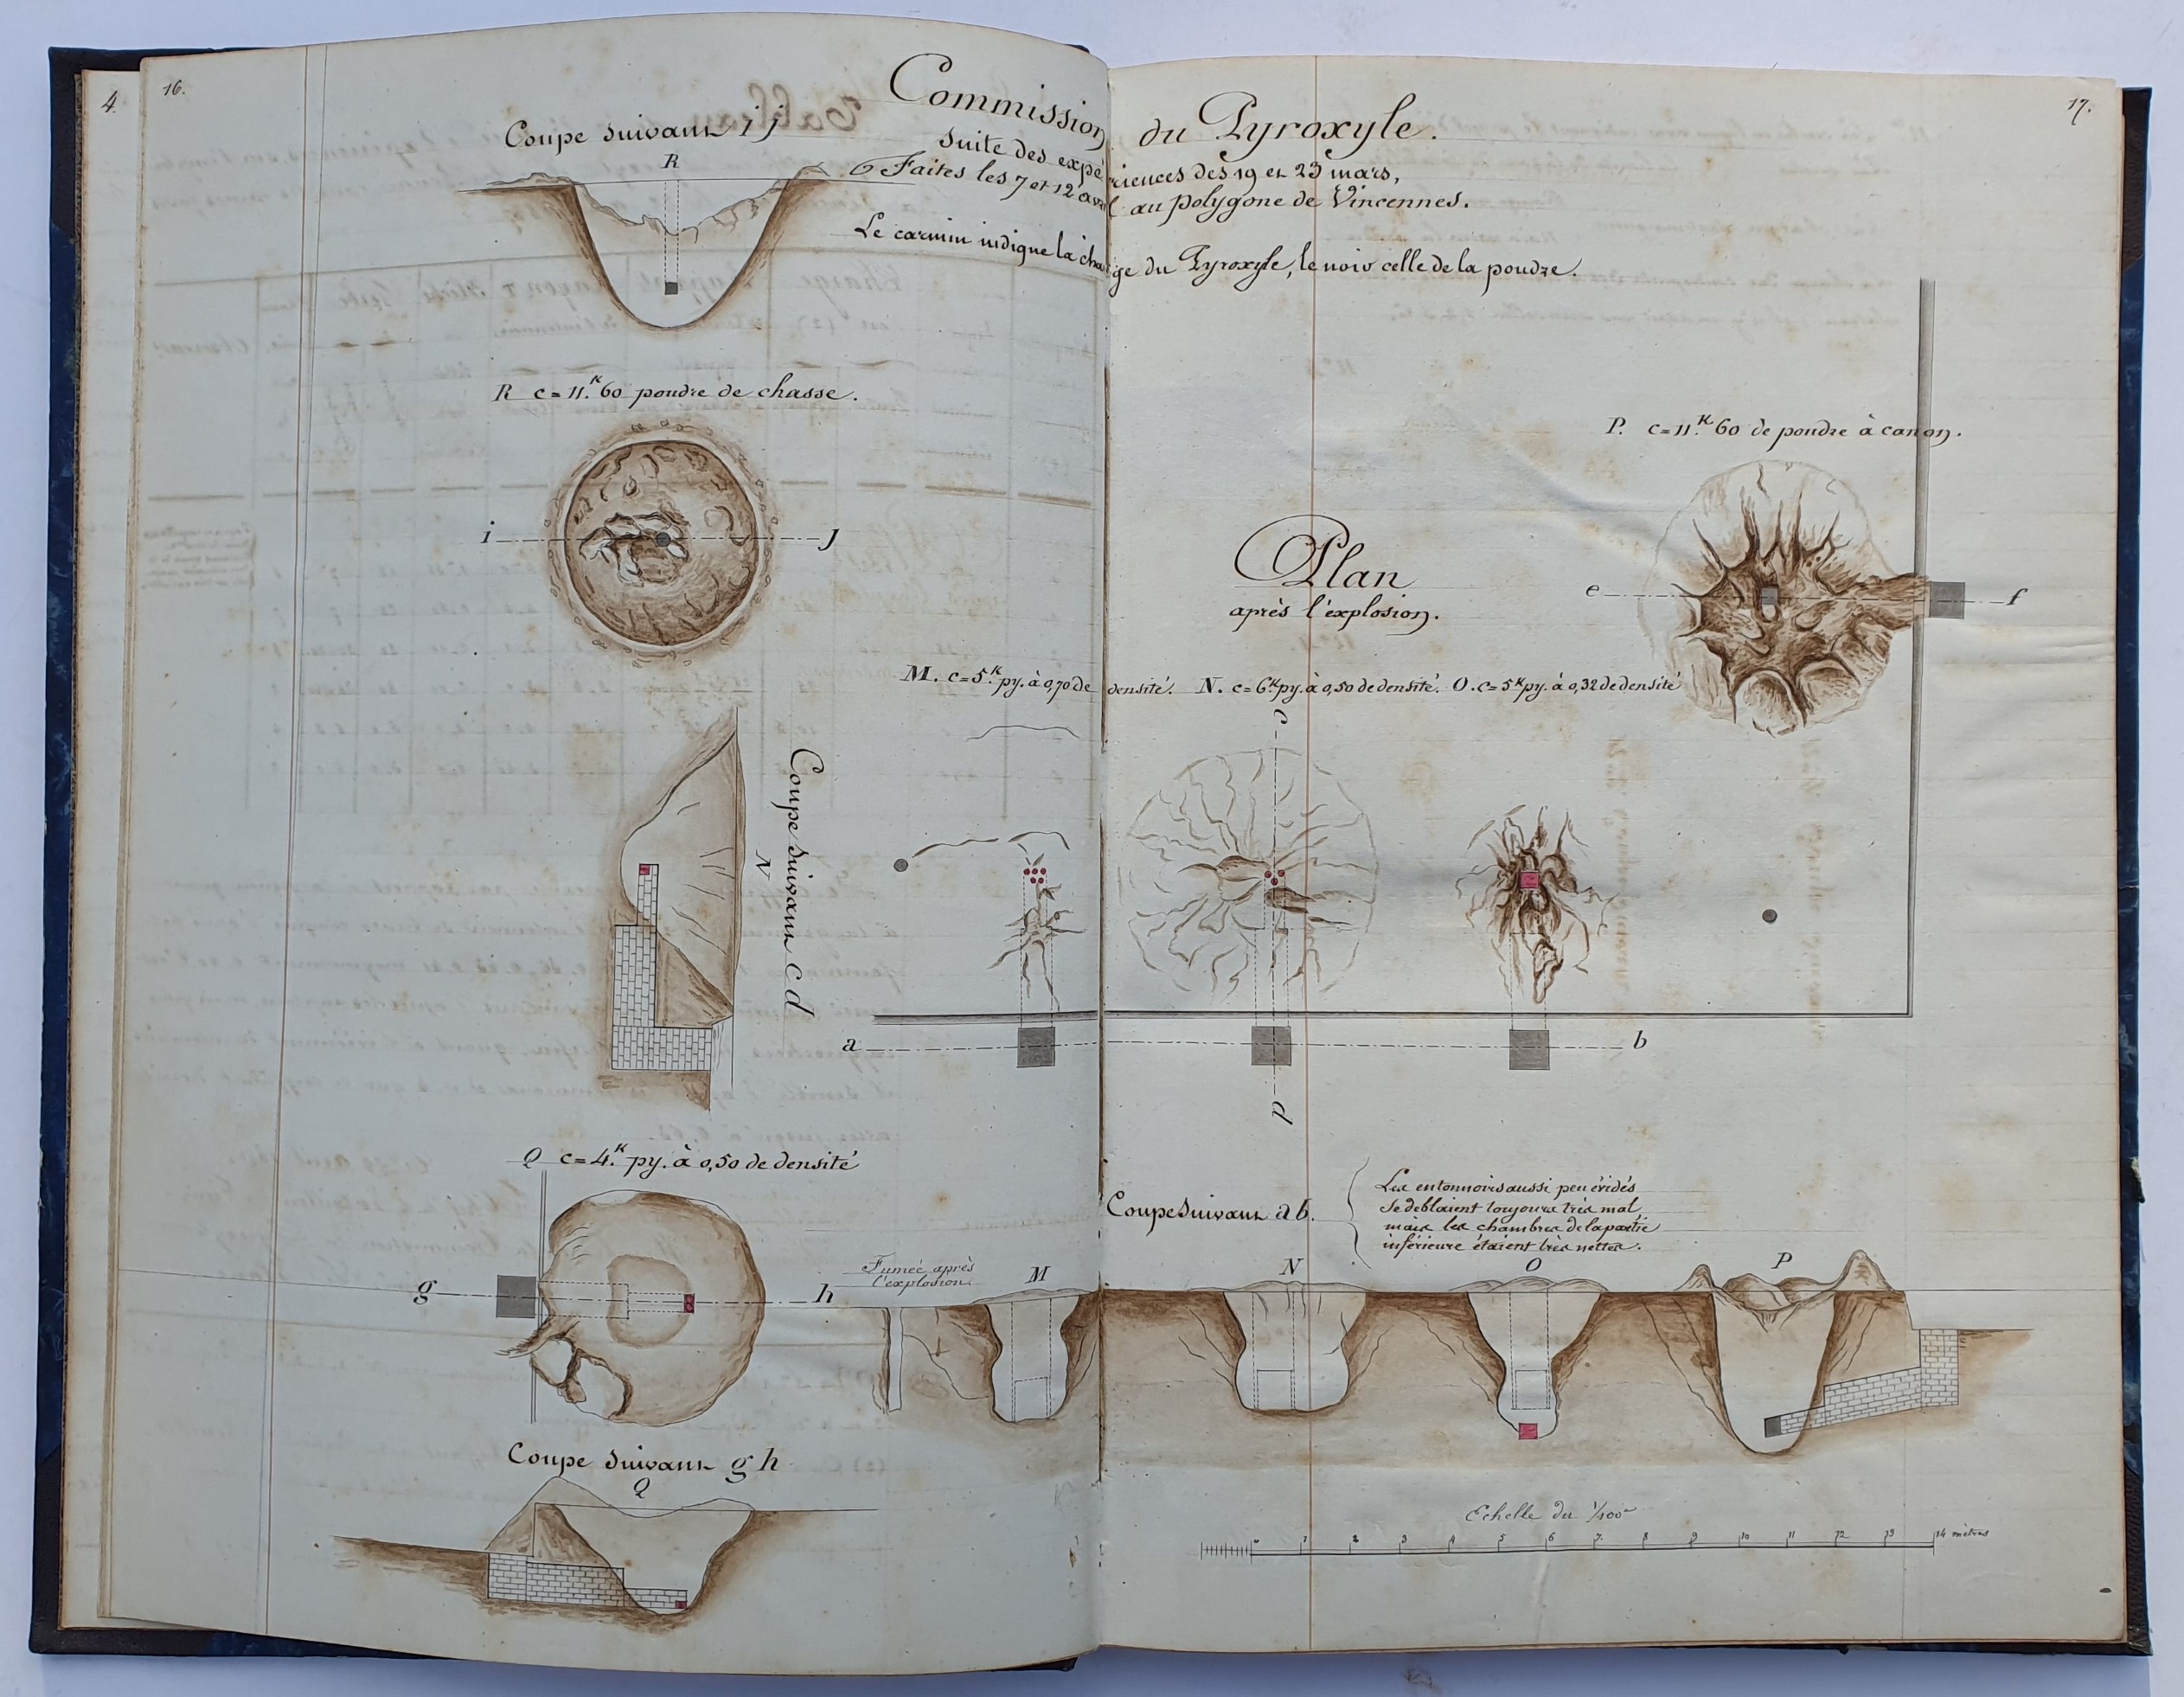 4.
16.
17.
Commission du Pyroxyle.
Suite des expériences des 19 et 23 mars,
Faites les 7 et 12 avril au polygone de Vincennes.
Le carmin indique la charge du Pyroxyle, le noir celle de la poudre.
Coupe suivant i j
R
R c = 11.K 60 poudre de chasse.
i
j
P. c = 11.K 60 de poudre à canon.
Plan
après l'explosion.
e
f
M. c = 5.K py. à 0,70 de densité. N. c = 6K py. à 0,50 de densité. O. c = 5K py. à 0,32 de densité
c
Coupe suivant c d
N
a
b
d
Q c = 4.K py. à 0,50 de densité
g
h
Coupe suivant a b.
Les entonnoirs aussi peu évidés
se deblaient toujours très mal
mais les chambres de la partie
inférieure étaient très nettes.
Fumée après
l'explosion.
M
N
O
P
Coupe suivant g h
Q
Echelle du 1/100e
0 1 2 3 4 5 6 7 8 9 10 11 12 13 14 mètres